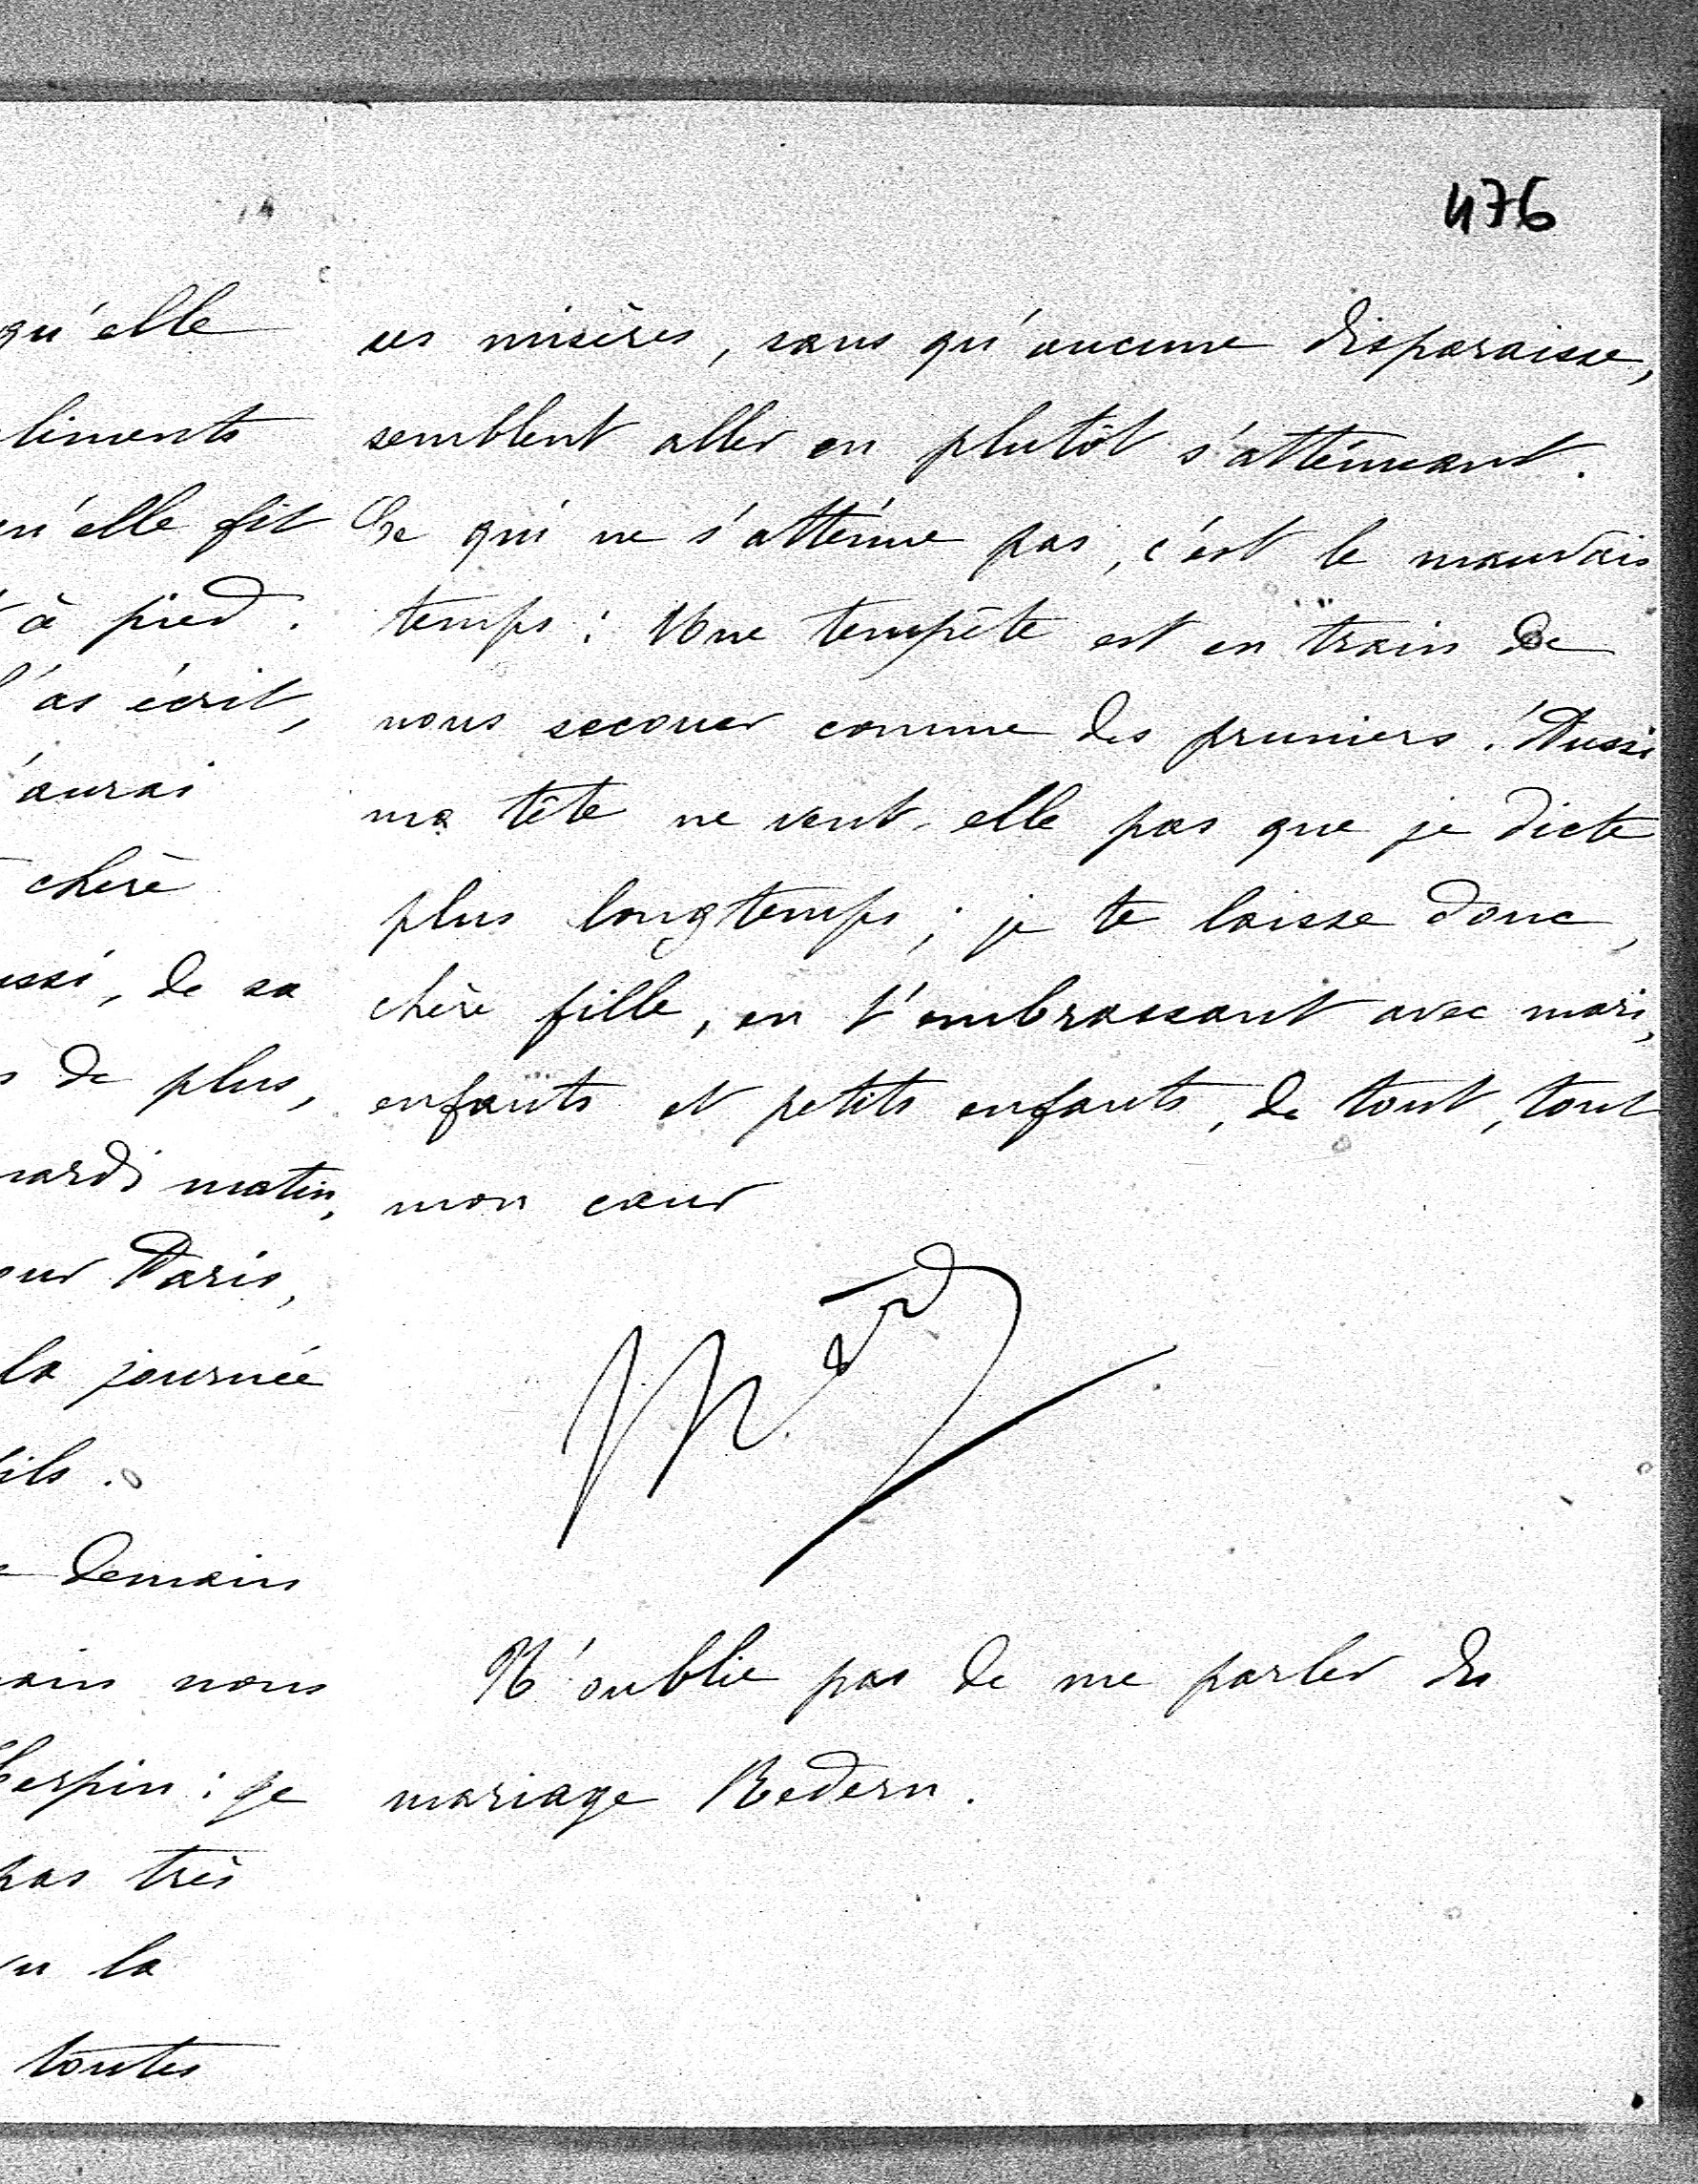 476
qu'elle
liments
qu'elle fit
à pied.
l'as écrit,
'aurai
chère
ussi, de sa
de plus,
mardi matin,
our Paris,
la journée
fils.
demain
ain nous
je
pas très
la
toutes
ses misères, sans qu'aucune disparaisse,
semblent aller en plutôt s'atténuant.
Ce qui ne s'atténue pas, c'est le mauvais
temps : Une tempête est en train de
nous secouer comme des pruniers ! Aussi
ma tête ne veut-elle pas que je dicte
plus longtemps ; je te laisse donc,
chère fille, en t'embrassant avec mari,
enfants et petits enfants, de tout, tout
mon cœur
N'oublie pas de me parler du
mariage Redern.